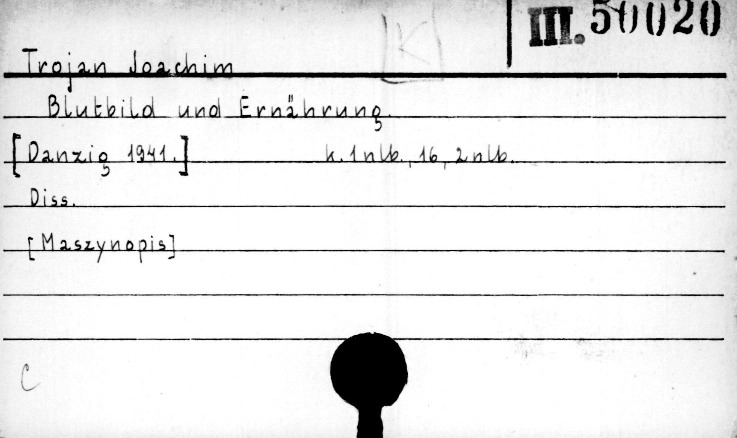 [K]
III. 50020
Trojan Joachim
Blutbild und Ernährung.
[Danzig 1941.] k. 1 nlb., 16, 2 nlb.
Diss.
[Maszynopis]
C